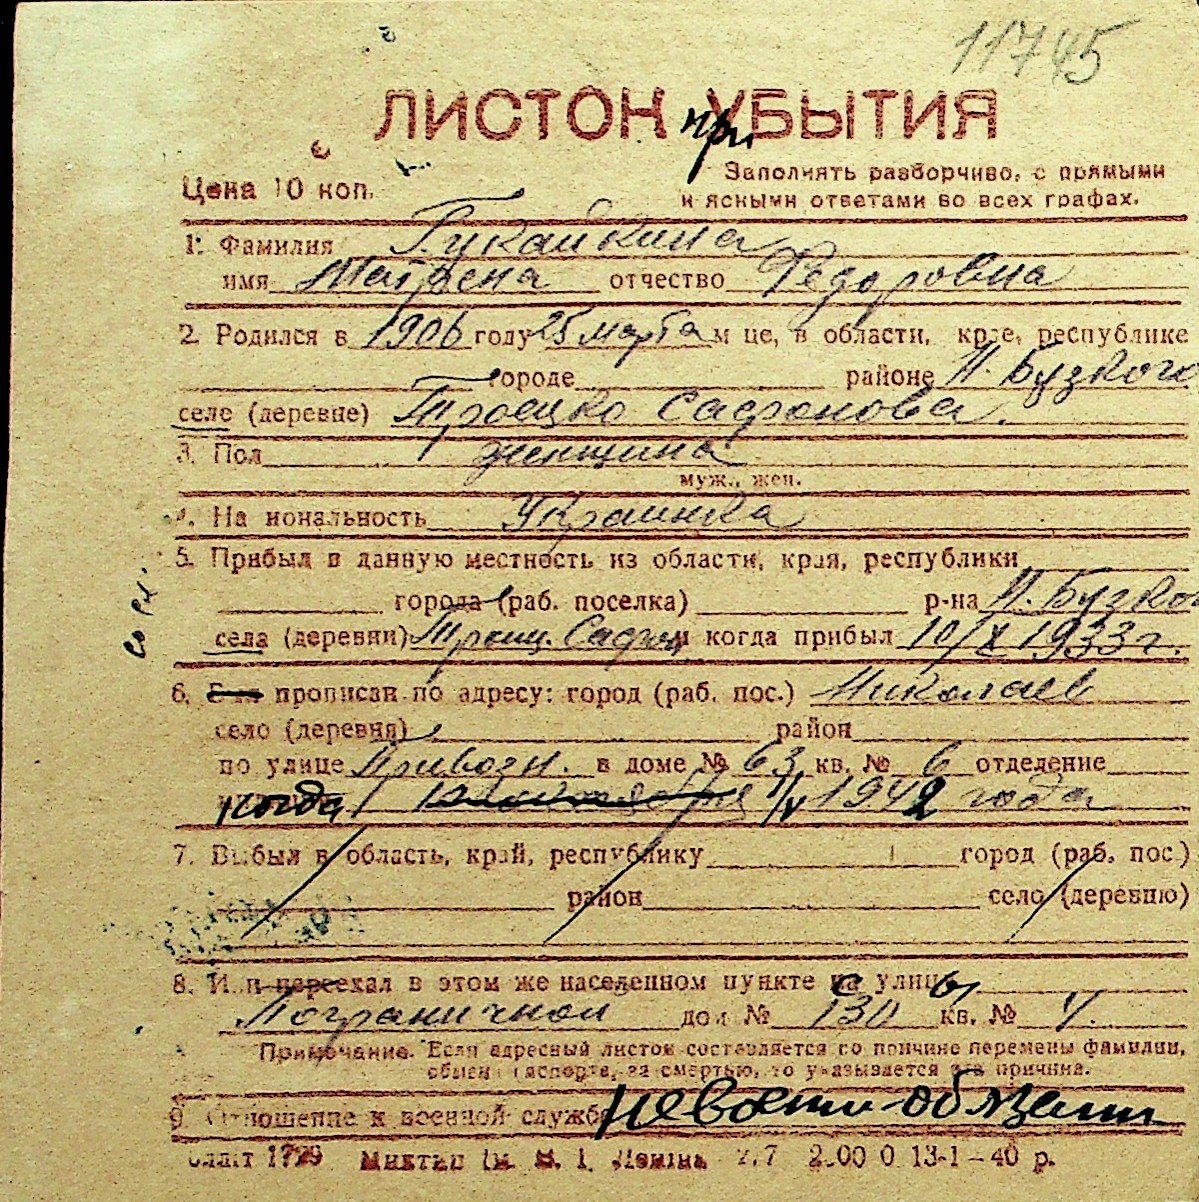 11745
ЛИСТОК при УБЫТИЯ
Цена 10 коп.
Заполнять разборчиво, с прямыми
и ясными ответами во всех графах.
1. Фамилия
имя Матрена отчество Федоровна
2. Родился в 1906 году 25 марта м це, в области, крае, республике
городе районе Н. Бузкого
селе (деревне) Троецко Сафонова.
3. Пол женщина
муж., жен.
4. Национальность Украинка
5. Прибыл в данную местность из области, края, республики
города (раб. поселка) р-на Н. Бузко
села (деревни) Троиц. Сафон и когда прибыл 10/X 1933 г.
6. прописан по адресу: город (раб. пос.) Николаев
село (деревня) район
по улице Привозн. в доме № 63 кв. № 6 отделение
когда 1/V 1942 года
7. Выбыл в область, край, республику город (раб. пос.)
район село (деревню)
8. Или переехал в этом же населенном пункте с улицы
Пограничной дом № 130 кв. № 4.
Примечание. Если адресный листок составляется по причине перемены фамилии,
обмен паспорта, за смертью, то указывается эта причина.
9. Отношение к военной службе невоенно-обязанн
1799 13-1-40 р.